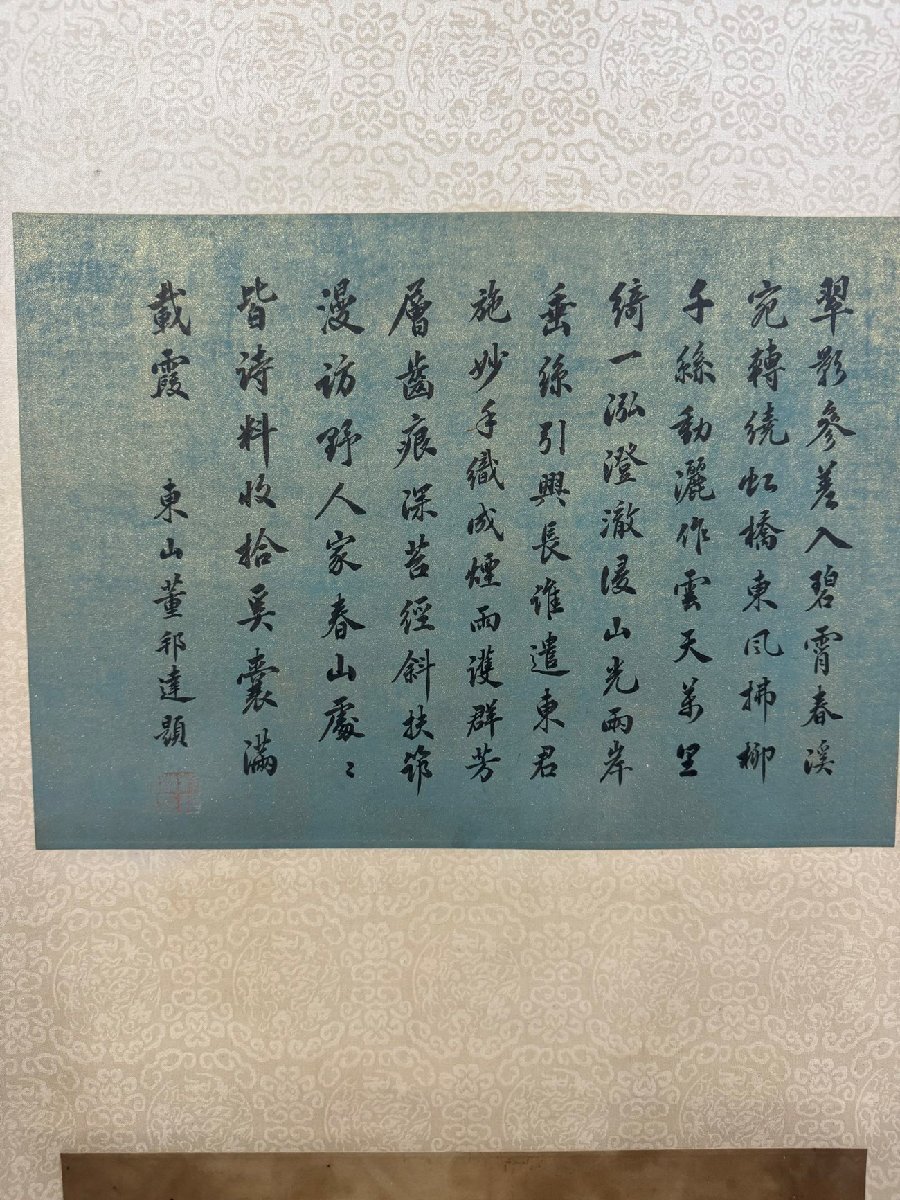 翠影參差入碧霄春溪
宛轉繞虹橋東風拂柳
千絲動灑作雲天萬里
綺一泓澄澈浸山光兩岸
垂絲引興長誰遣東君
施妙手織成煙雨護群芳
層齒痕深苔徑斜扶筇
漫訪野人家春山處〻
皆詩料收拾奚囊滿
載霞 東山董邦達題